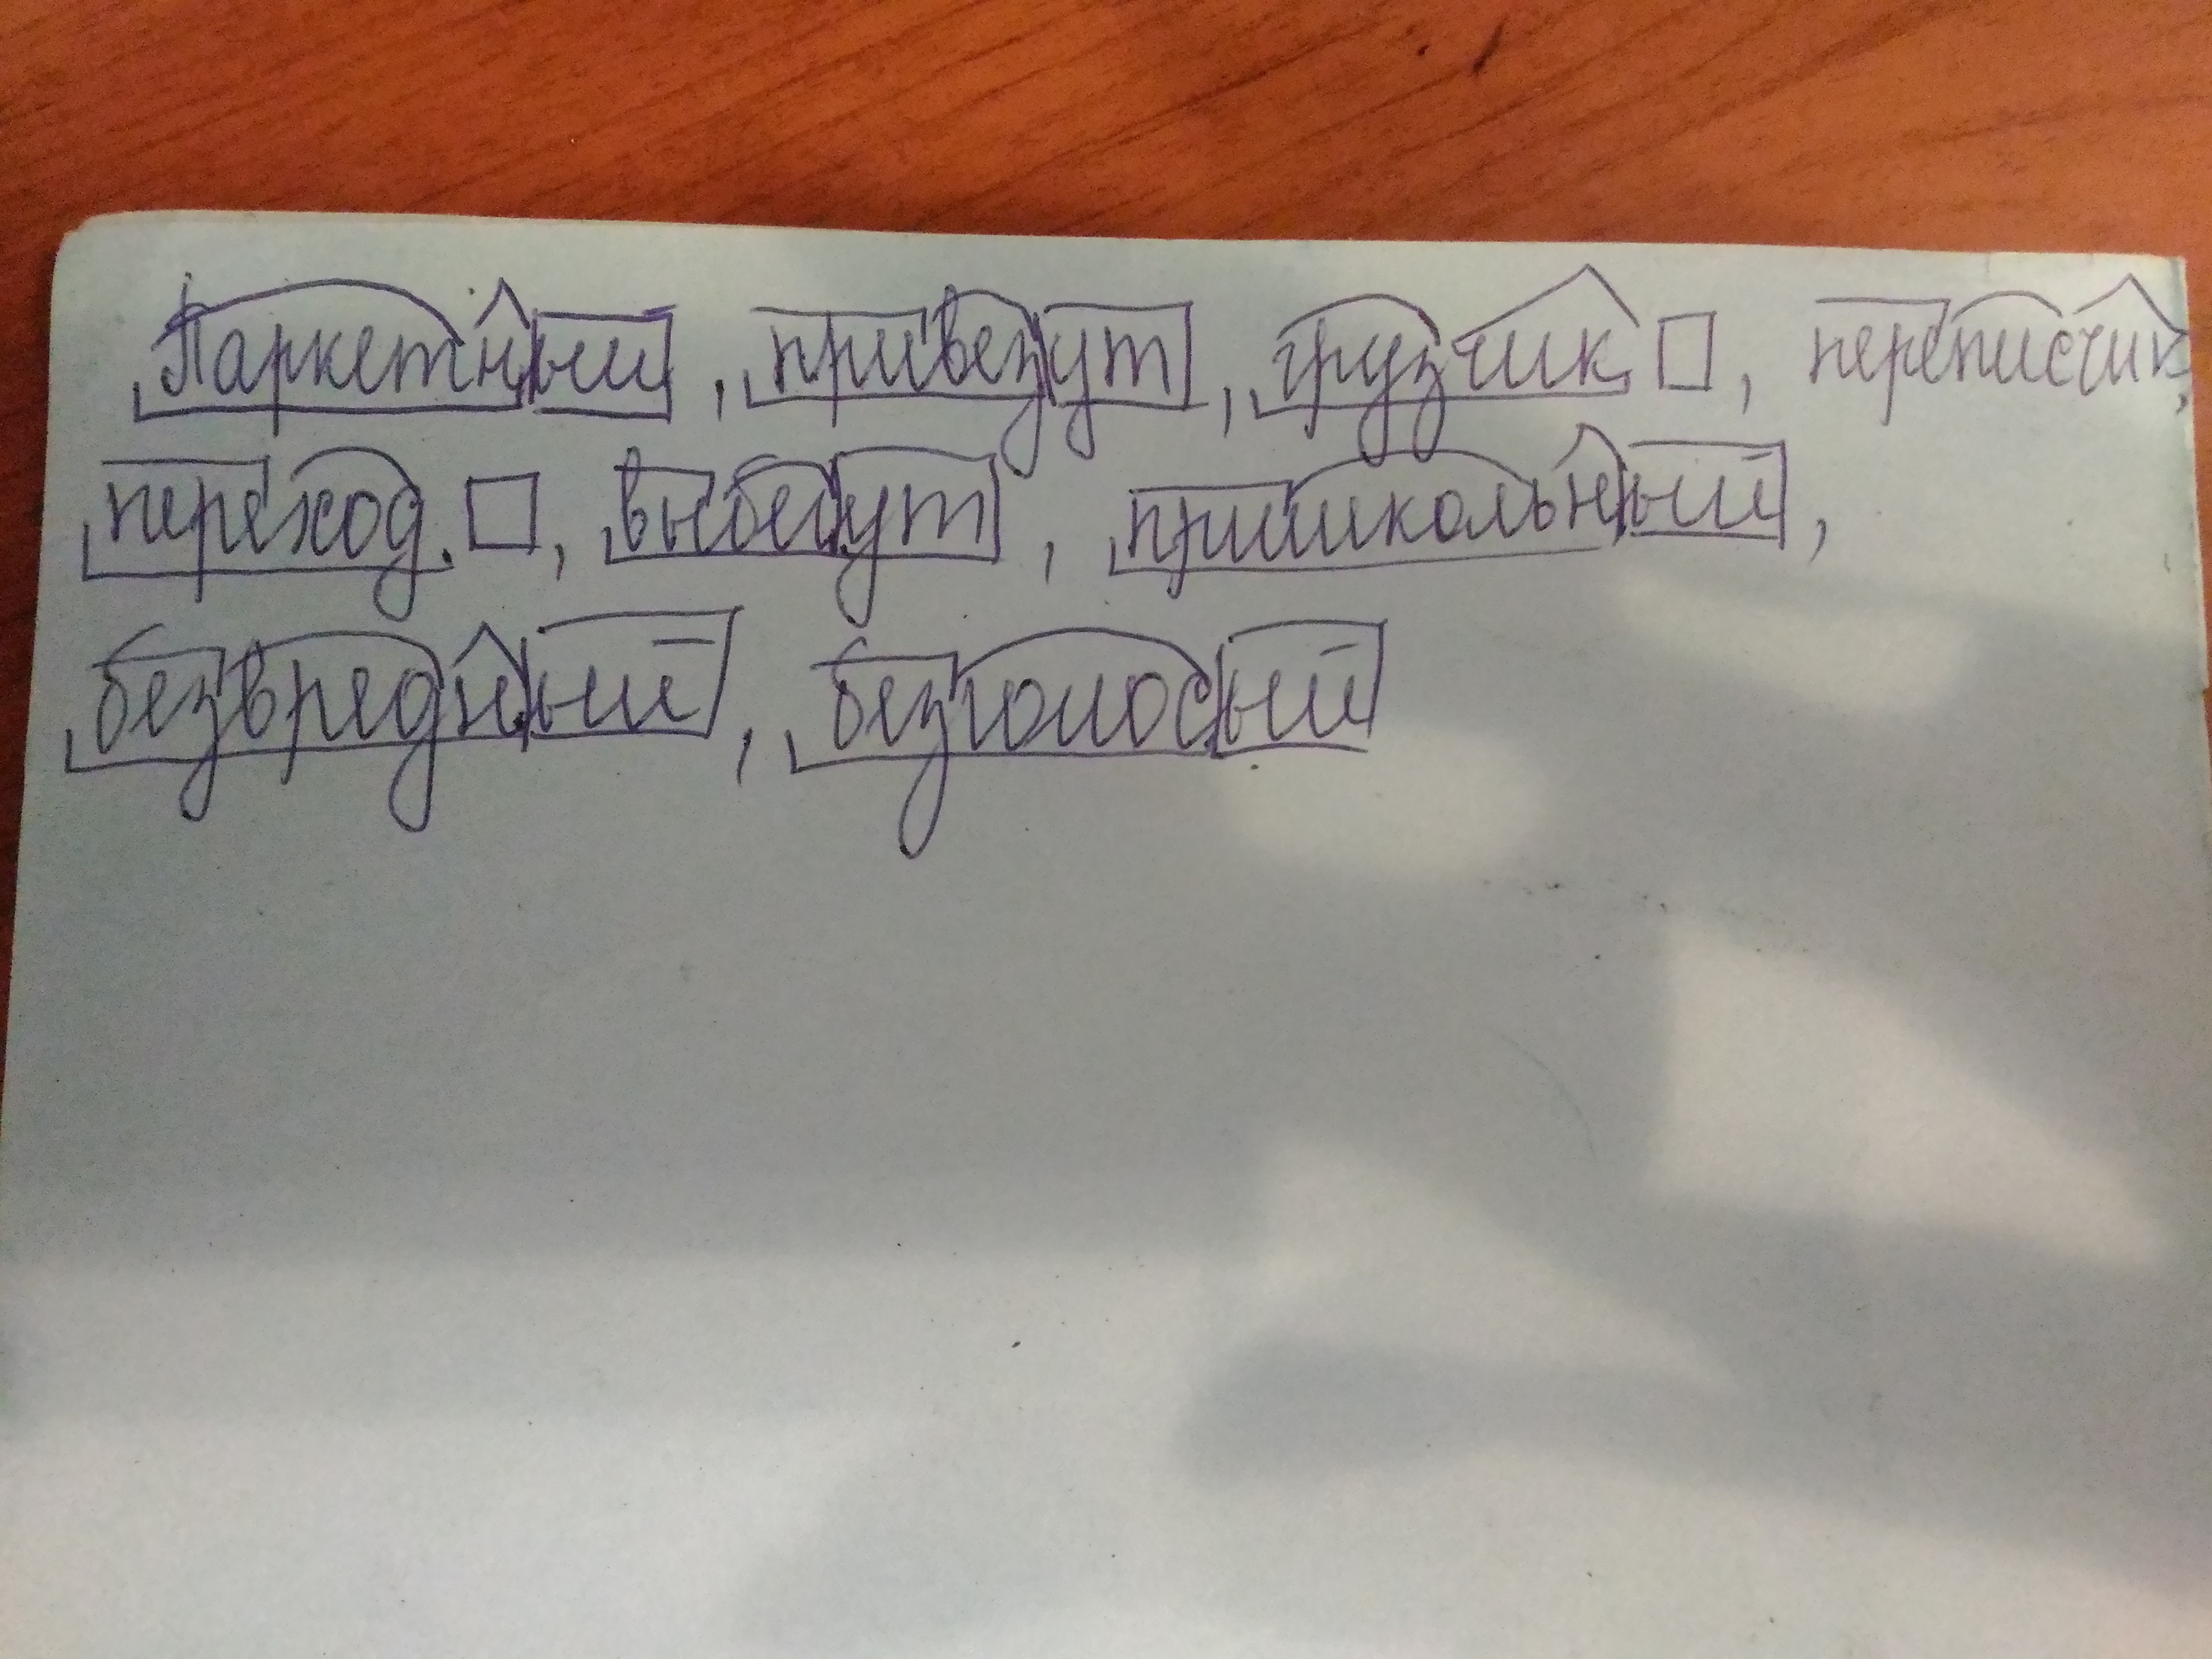 Паркетный, привезут, грузчик, переписчик,
переход, выбегут, пришкольный,
безвредный, безголосый